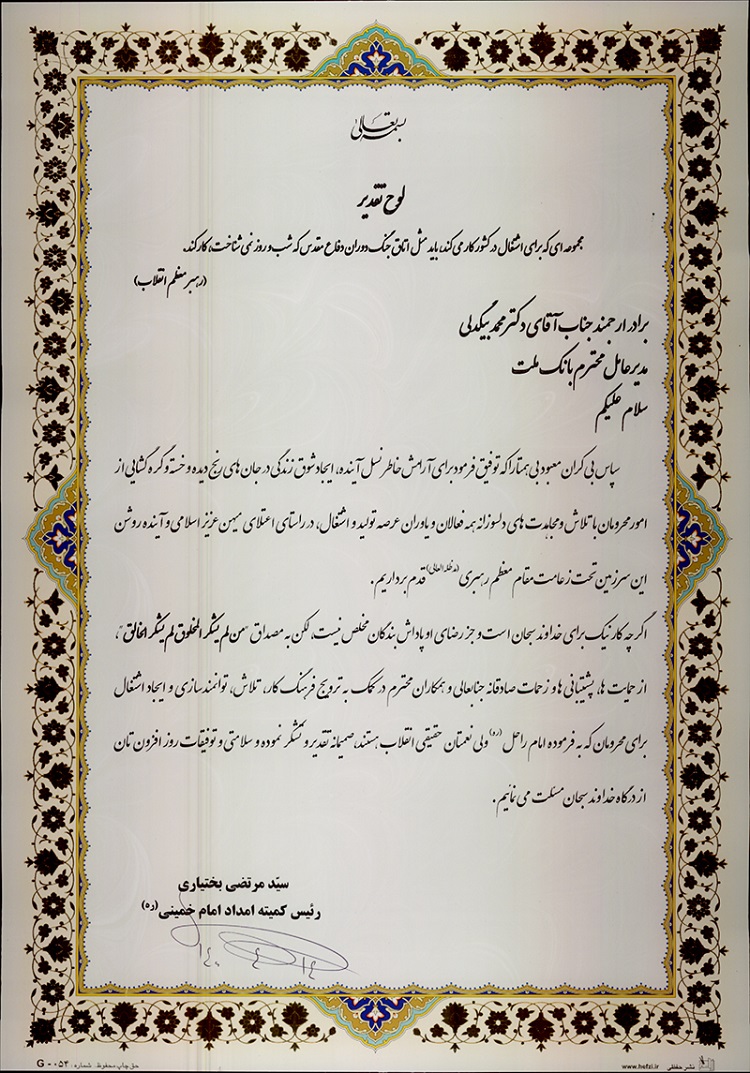 بسمه تعالی
لوح تقدیر
مجموعه ای که برای اشتغال در کشور کار می کند، باید مثل اتاق جنگ دوران دفاع مقدس که شب و روز نمی شناخت، کار کند.
(رهبر معظم انقلاب)
برادر ارجمند جناب آقای دکتر محمد بیگدلی
مدیر عامل محترم بانک ملت
سلام علیکم
سپاس بی کران معبود بی همتا را که توفیق فرمود برای آرامش خاطر نسل آینده، ایجاد شوق زندگی در جان های رنج دیده و خسته و گره گشایی از
امور محرومان با تلاش و مجاهدت های دلسوزانه همه فعالان و یاوران عرصه تولید و اشتغال، در راستای اعتلای میهن عزیز اسلامی و آینده روشن
این سرزمین تحت زعامت مقام معظم رهبری (مدظله العالی) قدم برداریم.
اگر چه کار نیک برای خداوند سبحان است و جز رضای او پاداش بندگان مخلص نیست، لکن به مصداق "من لم یشکر المخلوق لم یشکر الخالق"،
از حمایت ها، پشتیبانی ها و زحمات صادقانه جنابعالی و همکاران محترم در کمک به ترویج فرهنگ کار، تلاش، توانمندسازی و ایجاد اشتغال
برای محرومان که به فرموده امام راحل (ره) ولی نعمتان حقیقی انقلاب هستند، صمیمانه تقدیر و تشکر نموده و سلامتی و توفیقات روز افزون تان
از درگاه خداوند سبحان مسئلت می نمایم.
سیّد مرتضی بختیاری
رئیس کمیته امداد امام خمینی (ره)
۱۴۰ ۴ ۱۴
حق چاپ محفوظ. شماره: G - ۰۵۳
www.hefzi.ir نشر حفظی